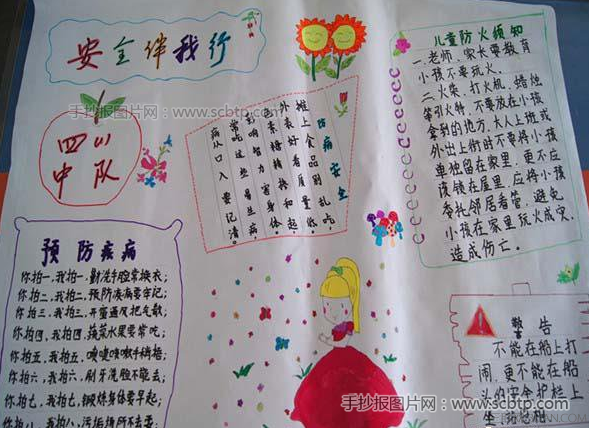 安全伴我行
手抄报图片网:www.scbtp.com
四(1)
中队
防病安全
摊上食品别乱吃,
外表好看质量低。
素糖精掺和起,
响智力害身体,
常吃这些易生病,
病从口入要记清。
儿童防火须知
一、老师、家长要教育
小孩不要玩火。
二、火柴、打火机、蜡烛
等引火物,不要放在小孩
拿到的地方,大人上班或
外出上街时不要将小孩
单独留在家里,更不应
该锁在屋里,应将小孩
委托邻居看管,避免
小孩在家里玩火成灾,
造成伤亡。
预防疾病
你拍一,我拍一,勤洗手脸常换衣;
你拍二,我拍二,预防疾病要牢记;
你拍三,我拍三,开窗通风把气散;
你拍四,我拍四,蔬菜水果要常吃;
你拍五,我拍五,咳嗽手捂;
你拍六,我拍六,刷牙洗脸不能丢;
你拍七,我拍七,锻炼身体要早起;
你拍八,我拍八,污垢场所不去
警告
不能在船上打
闹,更不能在船
头的安全护栏上
坐
手抄报图片网:www.scbtp.com